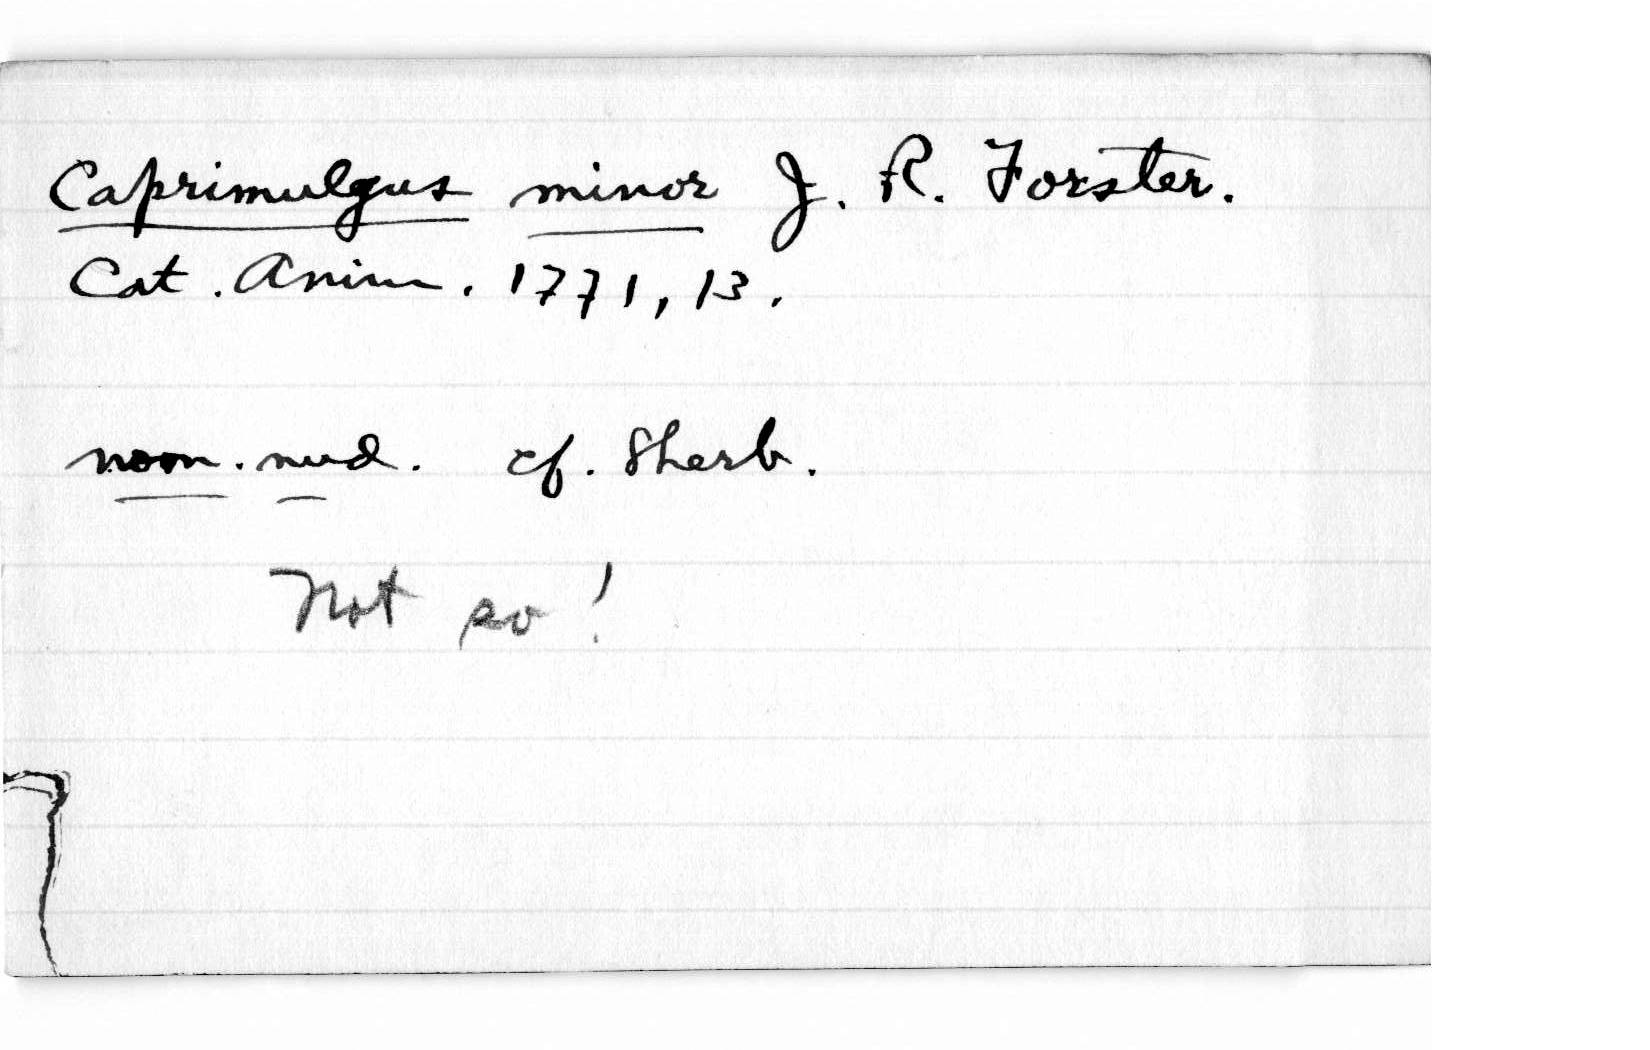 Caprimulgus minor J. R. Forster.
Cat. Anim. 1771, 13.
nom. nud. cf. Sherb.
Not so!